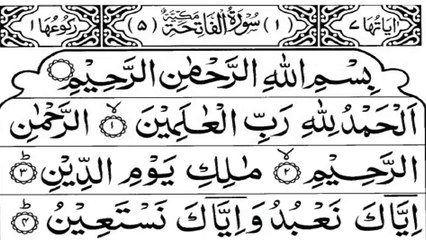 اٰيَاتُهَا ٧ (١) سُوْرَةُ الْفَاتِحَةِ مَكِّيَّةٌ (٥) رُكُوْعُهَا ١
بِسْمِ اللّٰهِ الرَّحْمٰنِ الرَّحِيْمِ
اَلْحَمْدُ لِلّٰهِ رَبِّ الْعٰلَمِيْنَ ۙ﴿١﴾ الرَّحْمٰنِ
الرَّحِيْمِ ۙ﴿٢﴾ مٰلِكِ يَوْمِ الدِّيْنِ ؕ﴿٣﴾
اِيَّاكَ نَعْبُدُ وَاِيَّاكَ نَسْتَعِيْنُ ؕ﴿٤﴾